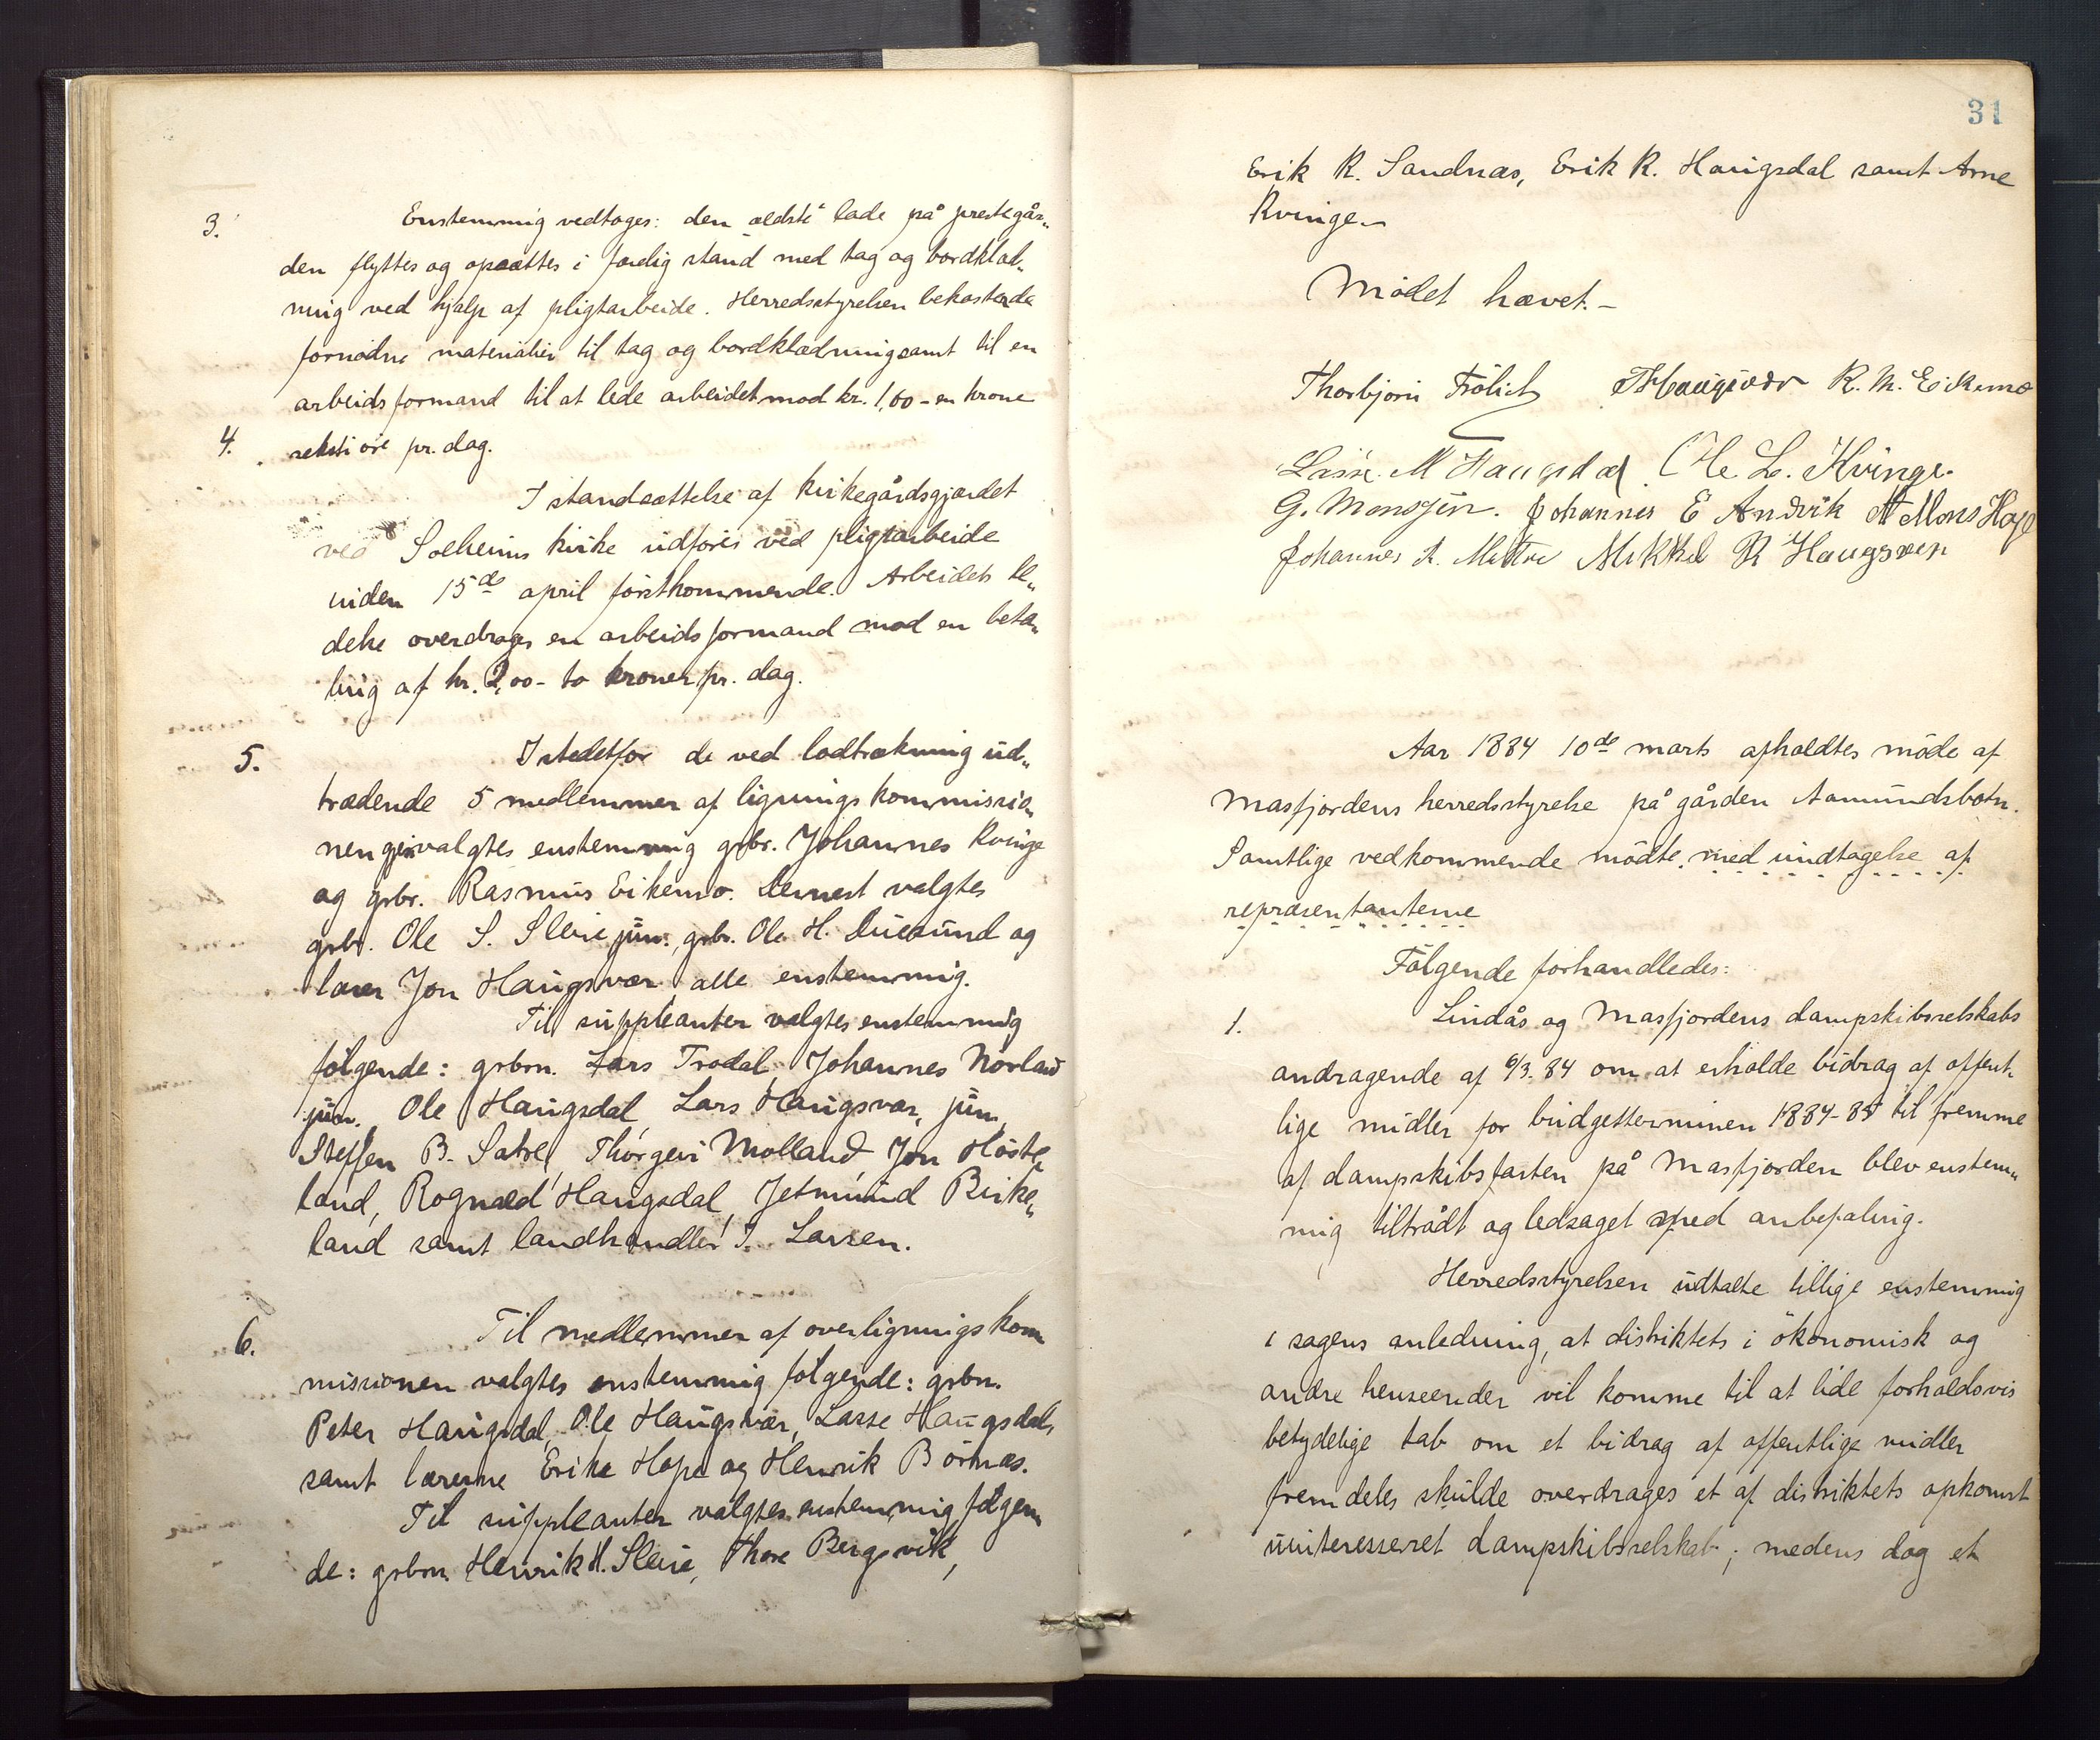 3. Enstemmig vedtoges: den ældste lade på prestegår„
den flyttes og opsættes i færdig stand med tag og bordklæd„
ning ved hjælp af pligtarbeide. Herredsstyrelsen bekoster de
fornødne materialier til tag og bordklædning samt til en
arbeidsformand til at lede arbeidet mod kr. 1,60 - en krone
seksti øre pr. dag.
4. I standsættelse af kirkegårdsgjærdet
ved Solheims kirke udføres ved pligtarbeide
inden 15de april førstkommende. Arbeidets le„
delse overdrages en arbeidsformand mod en beta„
ling af kr. 2,00 - to kroner pr. dag.
5. Istedetfor de ved lodtrækning ud„
trædende 5 medlemmer af ligningskommissio„
nen gjenvalgtes enstemmig grbr. Johannes Kvinge
og grbr. Rasmus Eikemo. Dernest valgtes
grbr. Ole S. Sleire jun., grbr. Ole H. Duesund og
lærer Jon Haugsvær, alle enstemmig.
Til suppleanter valgtes enstemmig
følgende: grbrn. Lars Trodal, Johannes Norland
jun. Ole Haugsdal, Lars Haugsvær, jun,
Steffen B. Sætre, Thorgeir Molland, Jon Hoste„
land, Rognald Haugsdal, Jetmund Birke„
land samt landhandler I. Larsen.
6. Til medlemmer af overligningskom
missionen valgtes enstemmig følgende: grbrn.
Peter Haugsdal, Ole Haugsvær, Lasse Haugsdal,
samt lærerne Erik Hope og Henrik Børnæs.
Til suppleanter valgtes enstemmig følgen
de: grbrn. Henrik H. Sleire, Thore Bergsvik,
31
Erik R. Sandnæs, Erik R. Haugsdal samt Arne
Kvinge.-
Mødet hævet.-
Thorbjørn Frölich Haugsvær R. M. Eikemo
Lasse M Haugsdal Ole L. Kvinge.
G. Monssen. Johannes E Andvik A Mons Hope
Johannes A. Matre Mikkel R Haugsvær
Aar 1884 10de marts afholdtes møde af
Masfjordens herredsstyrelse på gården Aamundsbotn.
Samtlige vedkommende mødte. med undtagelse af
repræsentanterne
Følgende forhandledes:
1. Lindås og Masfjordens dampskibsselskabs
andragende af 6/3. 84 om at erholde bidrag af offent„
lige midler for budgetterminen 1884-85 til fremme
af dampskibsfarten på Masfjorden blev enstem„
mig tiltrådt og ledsaget med anbefaling.
Herredsstyrelsen udtalte tillige enstemmig
i sagens anledning, at distriktets i økonomisk og
andre henseender vil komme til at lide forholdsvis
betydelige tab om et bidrag af offentlige midler
fremdeles skulde overdrages et af distriktets opkomst
uinteresseret dampskibsselskab; medens dog et